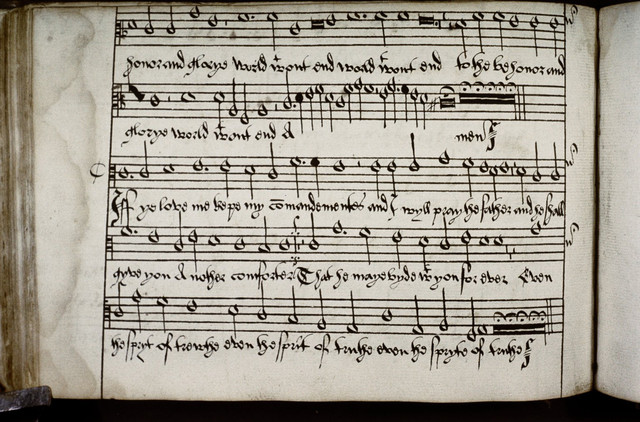 honor and glorye world wtout end world wtout end to the be honor and
glorye world wtout end A men
Iff ye love me kepe my comandementes and I wyll pray the father and he shall
gyve you A nother comforter That he maye byde wt you for ever Even
the spryt of trewthe even the sprit of truthe even the spryte of truthe